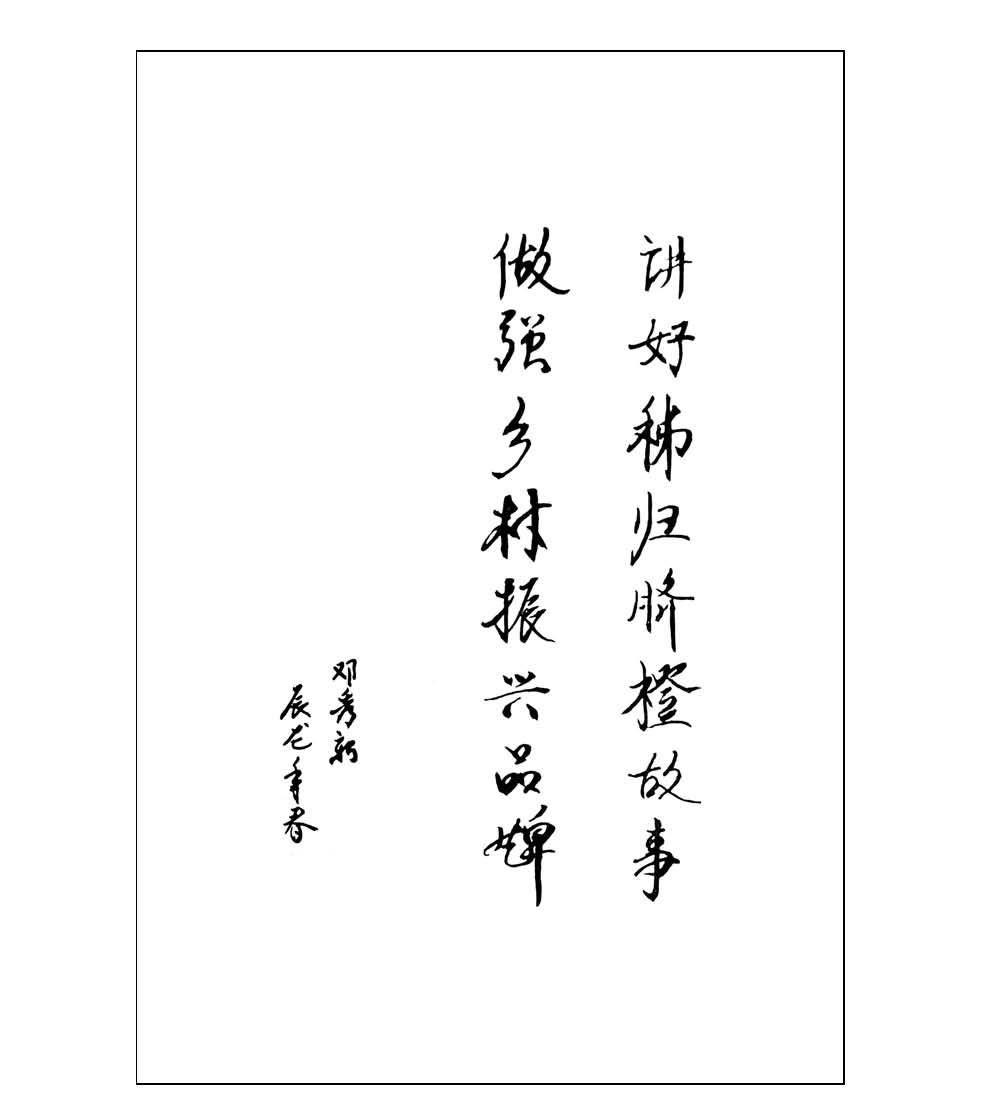 讲好秭归脐橙故事
做强乡村振兴品牌
邓秀新
辰龙年春